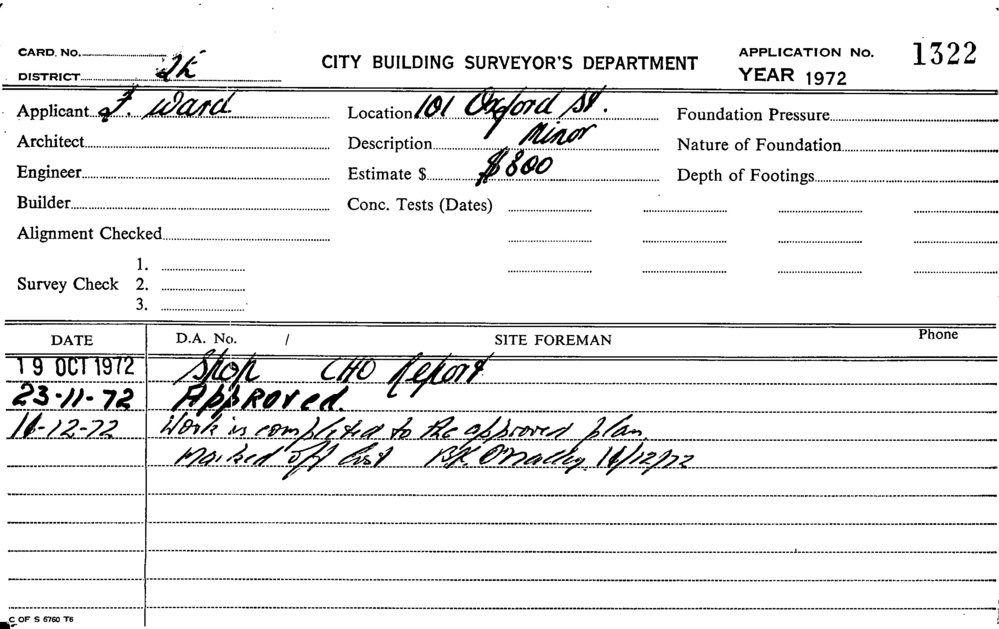 CARD. No.
CITY BUILDING SURVEYOR'S DEPARTMENT
APPLICATION No. 1322
DISTRICT
YEAR 1972
Applicant F. Ward
Location 101 Oxford St.
Foundation Pressure
Architect
Description Minor
Nature of Foundation
Engineer
Estimate $ $800
Depth of Footings
Builder
Conc. Tests (Dates)
Alignment Checked
Survey Check 1.
2.
3.
DATE D.A. No. / SITE FOREMAN Phone
19 OCT 1972 Shop CHO Report
23-11-72 Approved.
-12-72 Work is completed to the approved plan.
marked off list B.K. O'Malley /12/72
C OF S 6760 T6